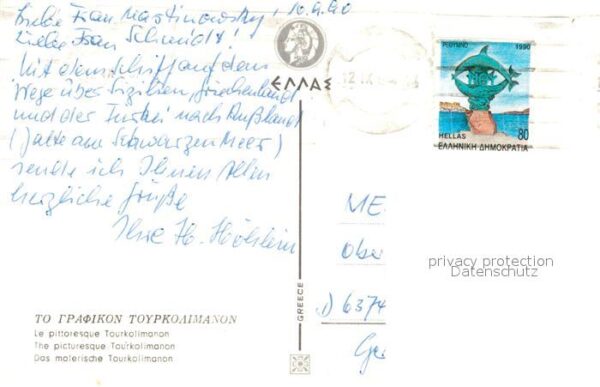 Liebe Frau Martinowsky, 10.9.90
Liebe Frau Schmidt!
Mit dem Schiff auf dem
Wege über Sizilien, Griechenland
und der Türkei nach Rußland
(Jalta am Schwarzen Meer)
sende ich Ihnen allen
herzliche Grüße
Ihre H. Holstein
ΕΛΛΑΣ
ΡΕΘΥΜΝΟ 1990
HELLAS 80
ΕΛΛΗΝΙΚΗ ΔΗΜΟΚΡΑΤΙΑ
ME
Ober
privacy protection
Datenschutz
D) 6374
GREECE
ΤΟ ΓΡΑΦΙΚΟΝ ΤΟΥΡΚΟΛΙΜΑΝΟΝ
Le pittoresque Tourkolimanon
The picturesque Tourkolimanon
Das malerische Tourkolimanon